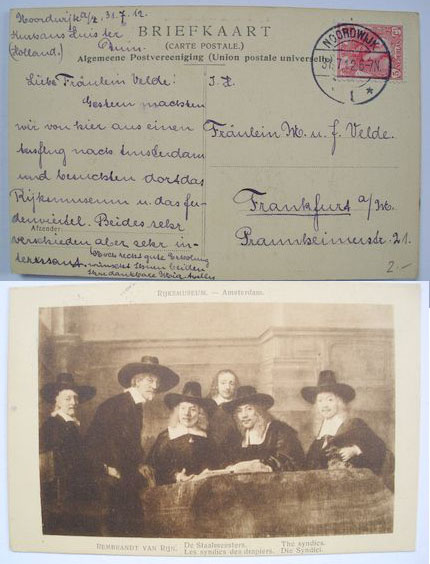 Noordwijk a/z. 31.7.12.
Kurhaus Huis ter
(Holland.) Duin.
BRIEFKAART
(CARTE POSTALE.)
Algemeene Postvereeniging (Union postale universelle)
NOORDWIJK
31.7.12.6-7N.
1
Liebe Fräulein Velde!
Gestern machten
wir von hier aus einen
Ausflug nach Amsterdam
und besuchten dort das
Rijksmuseum u. das Ju-
denviertel. Beides sehr
Afzender:
verschieden aber sehr in-
teressant.
Noch recht gute Erholung
wünscht Ihnen beiden
Ihre dankbare
Fräulein M. u. J. Velde.
Frankfurt a/M.
21.
2.-
RIJKSMUSEUM. — Amsterdam.
REMBRANDT VAN RIJN.
De Staalmeesters. The syndics.
Les syndics des drapiers. Die Syndici.